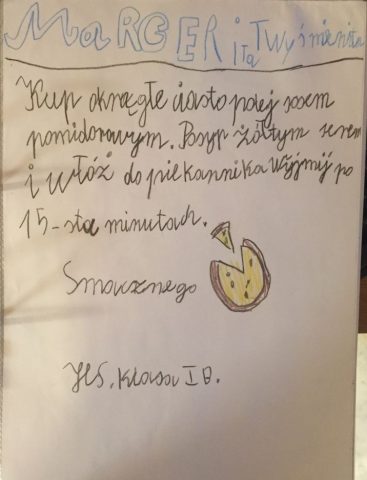 MaRGER i ta Twyśmienita
Kup okrągłe ciasto polej sosem
pomidorowym. Posyp żółtym serem
i włóż do piekarnnika Wyjmij po
15-sta minutach.
Smacznego
Klasa I B.